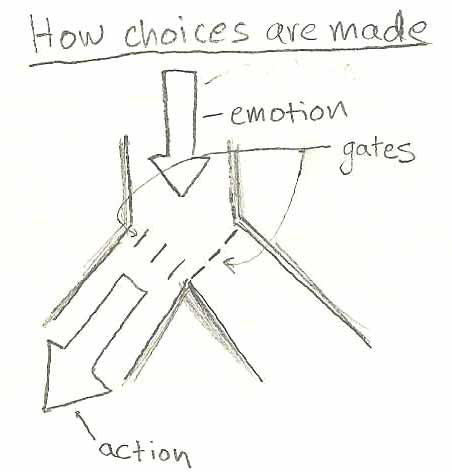 How choices are made
emotion
gates
action